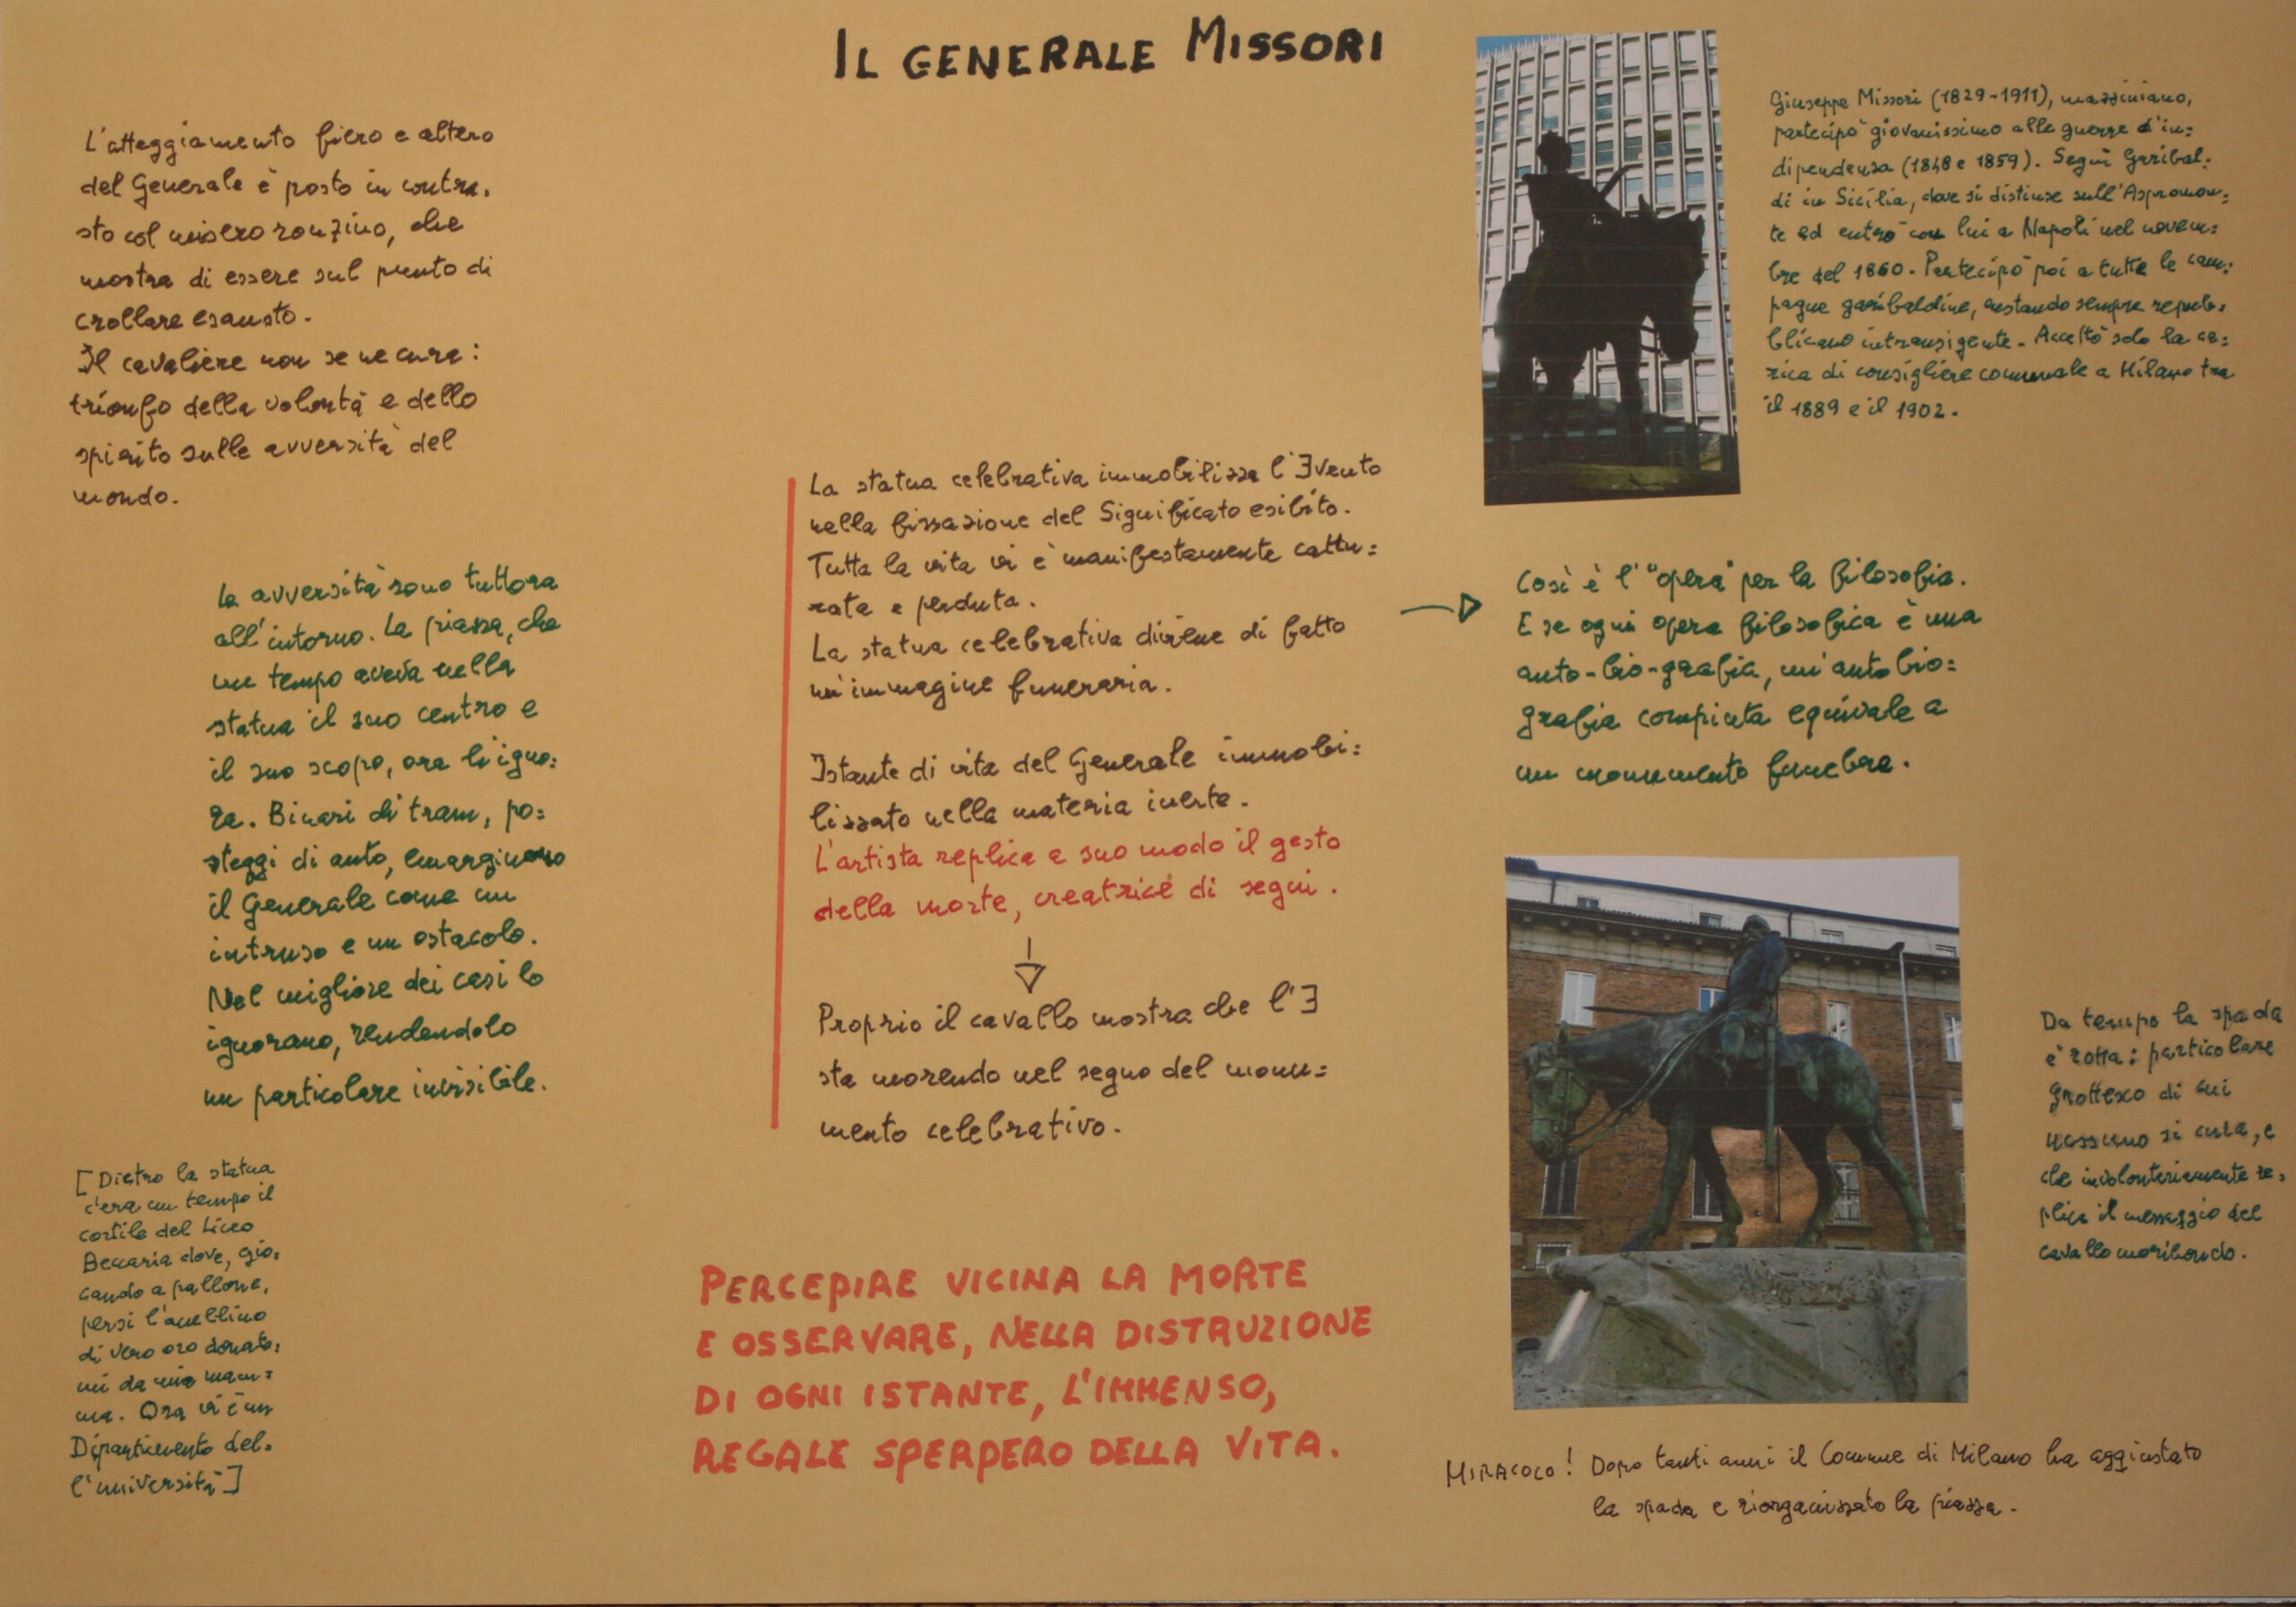 IL GENERALE MISSORI
L'atteggiamento fiero e altero
del Generale è posto in contra=
sto col misero ronzino, che
mostra di essere sul punto di
crollare esausto.
Il cavaliere non se ne cura:
trionfo della volontà e dello
spirito sulle avversità del
mondo.
Le avversità sono tuttora
all'intorno. La piazza, che
un tempo aveva nella
statua il suo centro e
il suo scopo, ora la igno=
ra. Binari di tram, po=
steggi di auto, emarginano
il Generale come un
intruso e un ostacolo.
Nel migliore dei casi lo
ignorano, rendendolo
un particolare invisibile.
[Dietro la statua
c'era un tempo il
cortile del Liceo
Beccaria dove, gio=
cando a pallone,
persi l'anellino
di vero oro donato=
mi da mia mam=
ma. Ora vi è un
Dipartimento del=
l'università]
La statua celebrativa immobilizza l'Ǝvento
nella fissazione del Significato esibito.
Tutta la vita vi è manifestamente cattu=
rata e perduta.
La statua celebrativa diviene di fatto
un'immagine funeraria.
Istante di vita del Generale immobi=
lizzato nella materia inerte.
L'artista replica a suo modo il gesto
della morte, creatrice di segni.
Proprio il cavallo mostra che l'Ǝ
sta morendo nel segno del monu=
mento celebrativo.
PERCEPIRE VICINA LA MORTE
E OSSERVARE, NELLA DISTRUZIONE
DI OGNI ISTANTE, L'IMMENSO,
REGALE SPERPERO DELLA VITA.
Giuseppe Missori (1829-1911), mazziniano,
partecipò giovanissimo alle guerre d'in=
dipendenza (1848 e 1859). Seguì Garibal=
di in Sicilia, dove si distinse sull'Aspromon=
te ed entrò con lui a Napoli nel novem=
bre del 1860. Partecipò poi a tutte le cam=
pagne garibaldine, restando sempre repub=
blicano intransigente. Accettò solo la ca=
rica di consigliere comunale a Milano tra
il 1889 e il 1902.
Così è l'"opera" per la filosofia.
E se ogni opera filosofica è una
auto-bio-grafia, un'autobio=
grafia compiuta equivale a
un monumento funebre.
Da tempo la spada
è rotta: particolare
grottesco di cui
nessuno si cura, e
che involontariamente re=
plica il messaggio del
cavallo moribondo.
MIRACOLO! Dopo tanti anni il Comune di Milano ha aggiustato
la spada e riorganizzato la piazza.